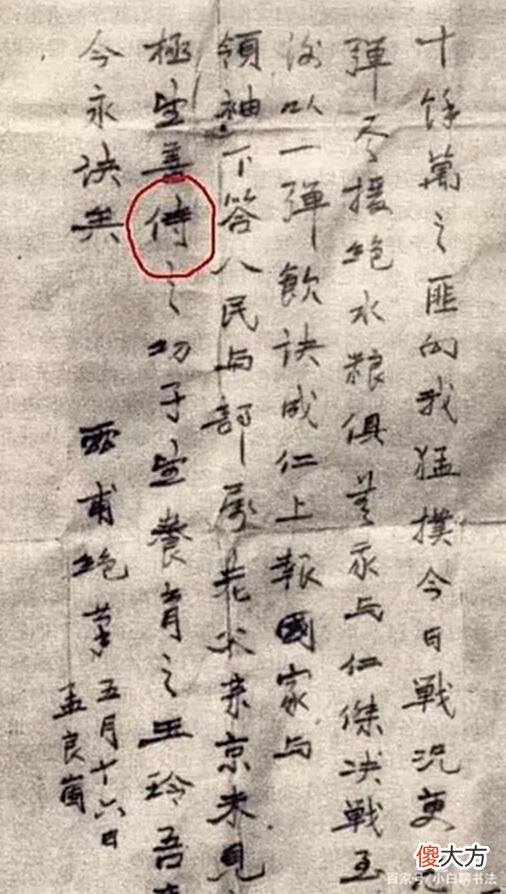 十餘萬之匪向我猛撲今日戰況更
彈盡援絕水糧俱無我與仁傑決戰至
後以一彈飲訣成仁上報國家與
領袖下答人民與部屬老父來京未見
極望善待之幼子望養育之玉玲吾
今永訣矣
靈甫絕筆五月十六日
孟良崮
傻大方
百家号/小白聊书法